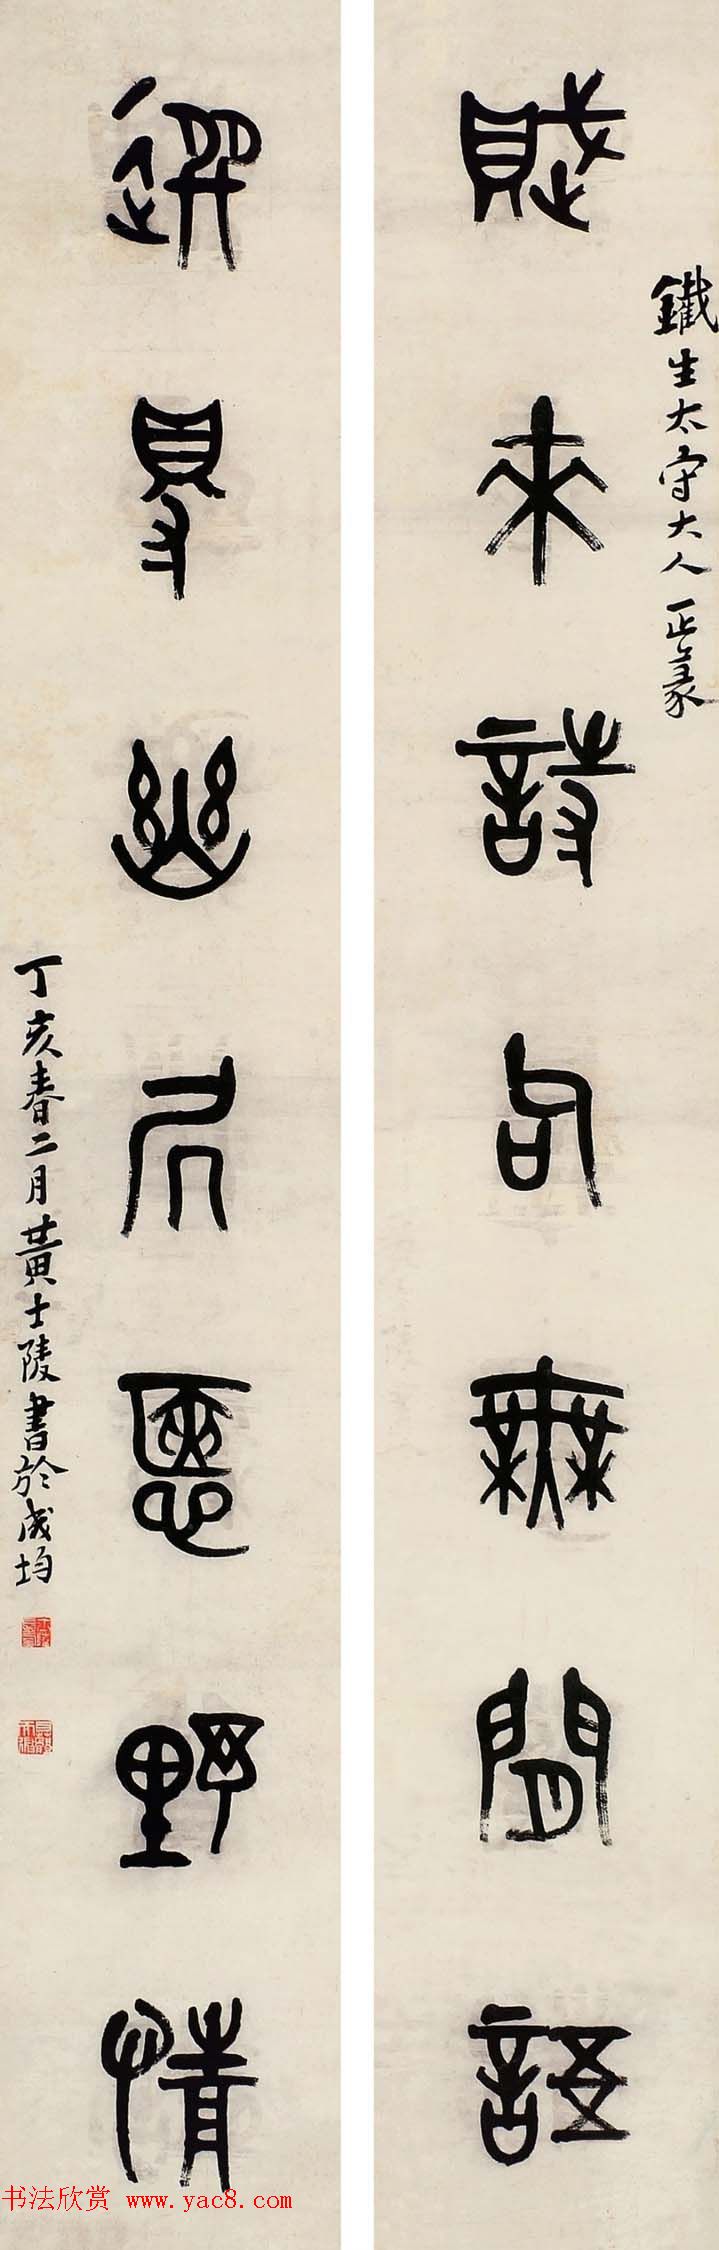 鐵生太守大人正篆
賦來詩句無閒語
選得幽居愜野情
丁亥春二月黃士陵書於成均
书法欣赏 www.yac8.com